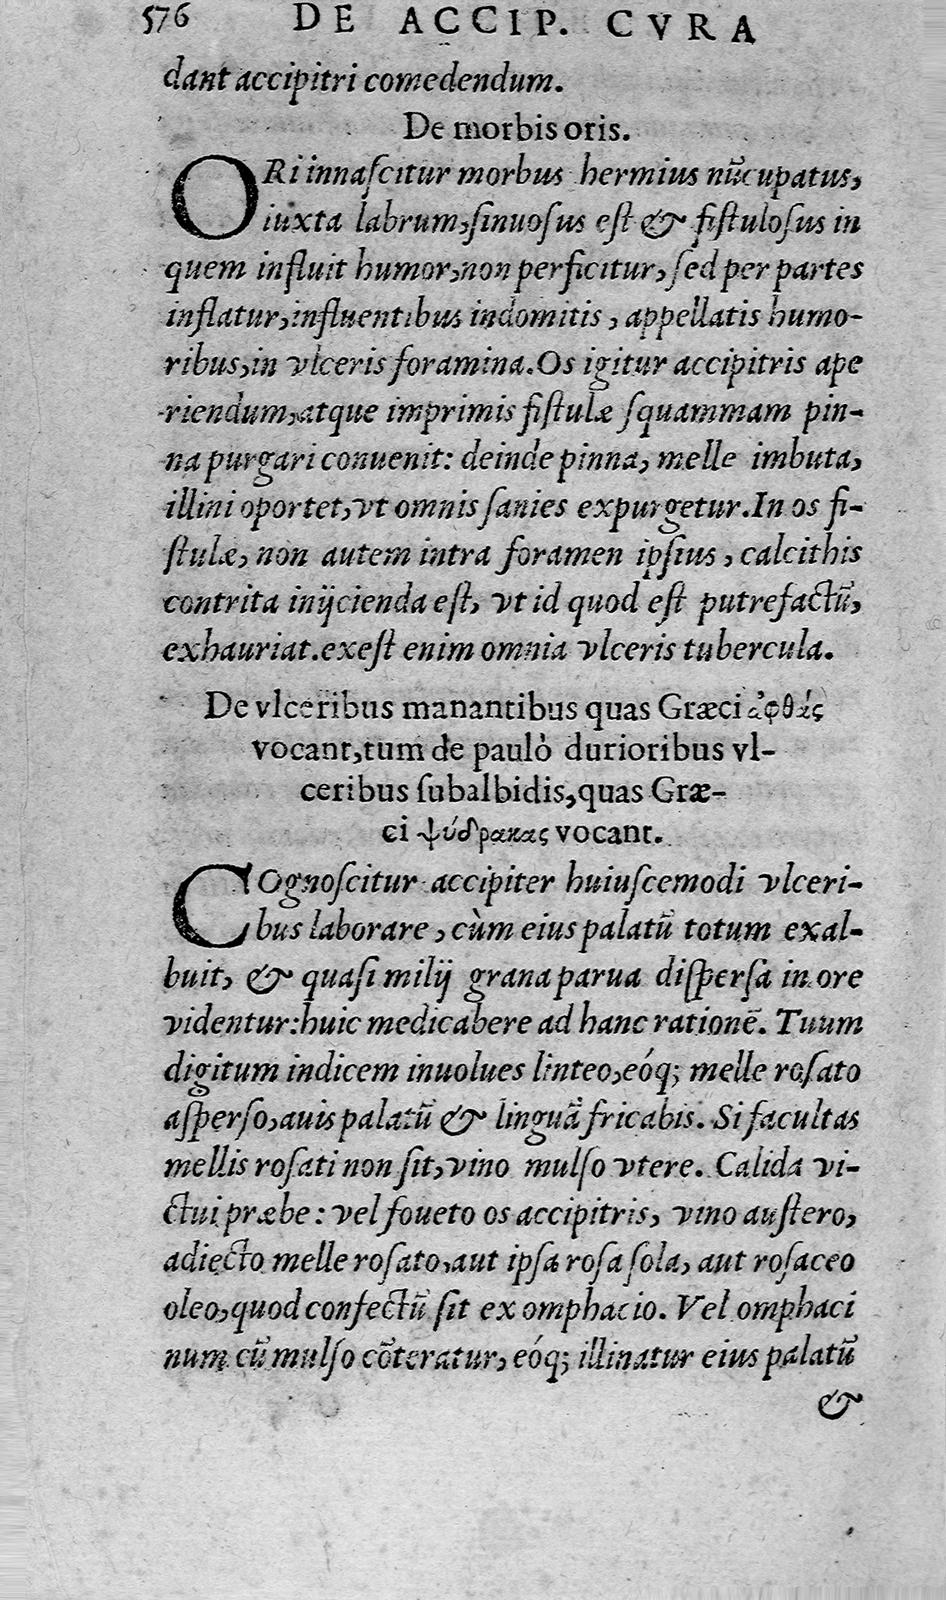 576 DE ACCIP. CVRA
dant accipitri comedendum.
De morbis oris.
ORi innaſcitur morbus hermius nūcupatus,
iuxta labrum, ſinuoſus eſt & fiſtuloſus in
quem influit humor, non perficitur, ſed per partes
inflatur, influentibus indomitis, appellatis humo-
ribus, in vlceris foramina. Os igitur accipitris ape
riendum, atque imprimis fiſtulæ ſquammam pin-
na purgari conuenit: deinde pinna, melle imbuta,
illini oportet, vt omnis ſanies expurgetur. In os fi-
ſtulæ, non autem intra foramen ipſius, calcithis
contrita inijcienda eſt, vt id quod eſt putrefactū,
exhauriat. exeſt enim omnia vlceris tubercula.
De vlceribus manantibus quas Græci ἀφθάς
vocant, tum de paulò durioribus vl-
ceribus ſubalbidis, quas Græ-
ci ψύδρακας vocant.
COgnoſcitur accipiter huiuſcemodi vlceri-
bus laborare, cùm eius palatū totum exal-
buit, & quaſi milij grana parua diſperſa in ore
videntur: huic medicabere ad hanc rationē. Tuum
digitum indicem inuolues linteo, eóq; melle roſato
aſperſo, auis palatū & linguā fricabis. Si facultas
mellis roſati non ſit, vino mulſo vtere. Calida vi-
ctui præbe: vel foueto os accipitris, vino auſtero,
adiecto melle roſato, aut ipſa roſa ſola, aut roſaceo
oleo, quod confectū ſit ex omphacio. Vel omphaci
num cū mulſo cōteratur, eóq; illinatur eius palatū
&